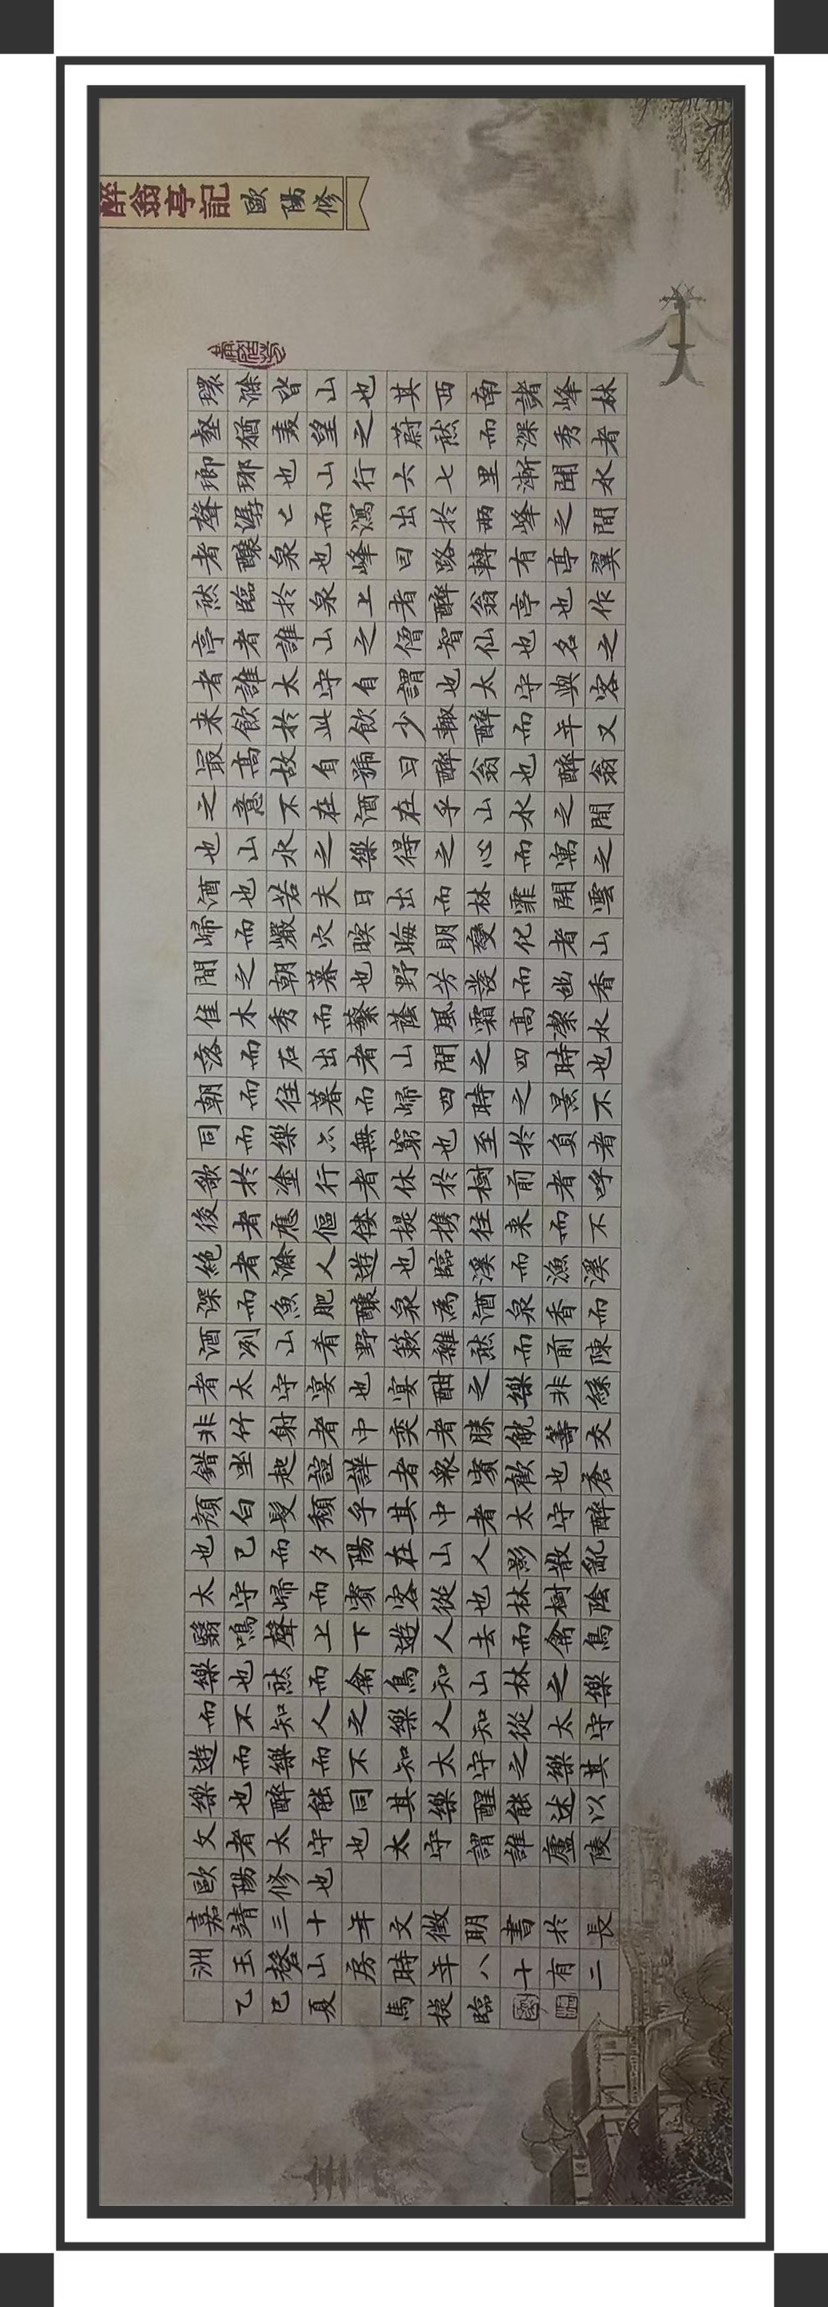 醉翁亭記 歐陽修
環滁皆山也其西南諸峰林
壑猶美望之蔚然而深秀者
瑯琊也山行六七里漸聞水
聲潺〻而瀉出於兩峰之間
者釀泉也峰回路轉有亭翼
然臨於泉上者醉翁亭也作
亭者誰山之僧智仙也名之
者誰太守自謂也太守與客
来飲於此飲少輙醉而年又
最高故自號曰醉翁也醉翁
之意不在酒在乎山水之間
也山水之樂得之心而寓之
酒也若夫日出而林霏開雲
歸而巖穴暝晦明變化者山
間之朝暮也野芳發而幽香
佳木秀而蘩蔭風霜高潔水
落而石出者山間之四時也
朝而往暮而歸四時之景不
同而樂亦無窮也至於負者
歌於塗行者休於樹前者呼
後者應傴僂提攜往来而不
絶者滁人遊也臨溪而漁溪
深而魚肥釀泉為酒泉香而
酒冽山肴野簌雜然而前陳
者太守宴也宴酣之樂非絲
非竹射者中奕者勝觥籌交
錯坐起諠譁者衆賓歡也蒼
顏白髮頹乎其中者太守醉
也已而夕陽在山人影散亂
太守歸而賓客從也樹林陰
翳鳴聲上下遊人去而禽鳥
樂也然而禽鳥知山林之樂
而不知人之樂人知從太守
遊而樂而不知太守之樂其
樂也醉能同其樂醒能述以
文者太守也太守謂誰廬陵
歐陽修也
嘉靖三十年文徵明書於長
洲玉磬山房時年八十有二
乙巳夏 馬捷臨